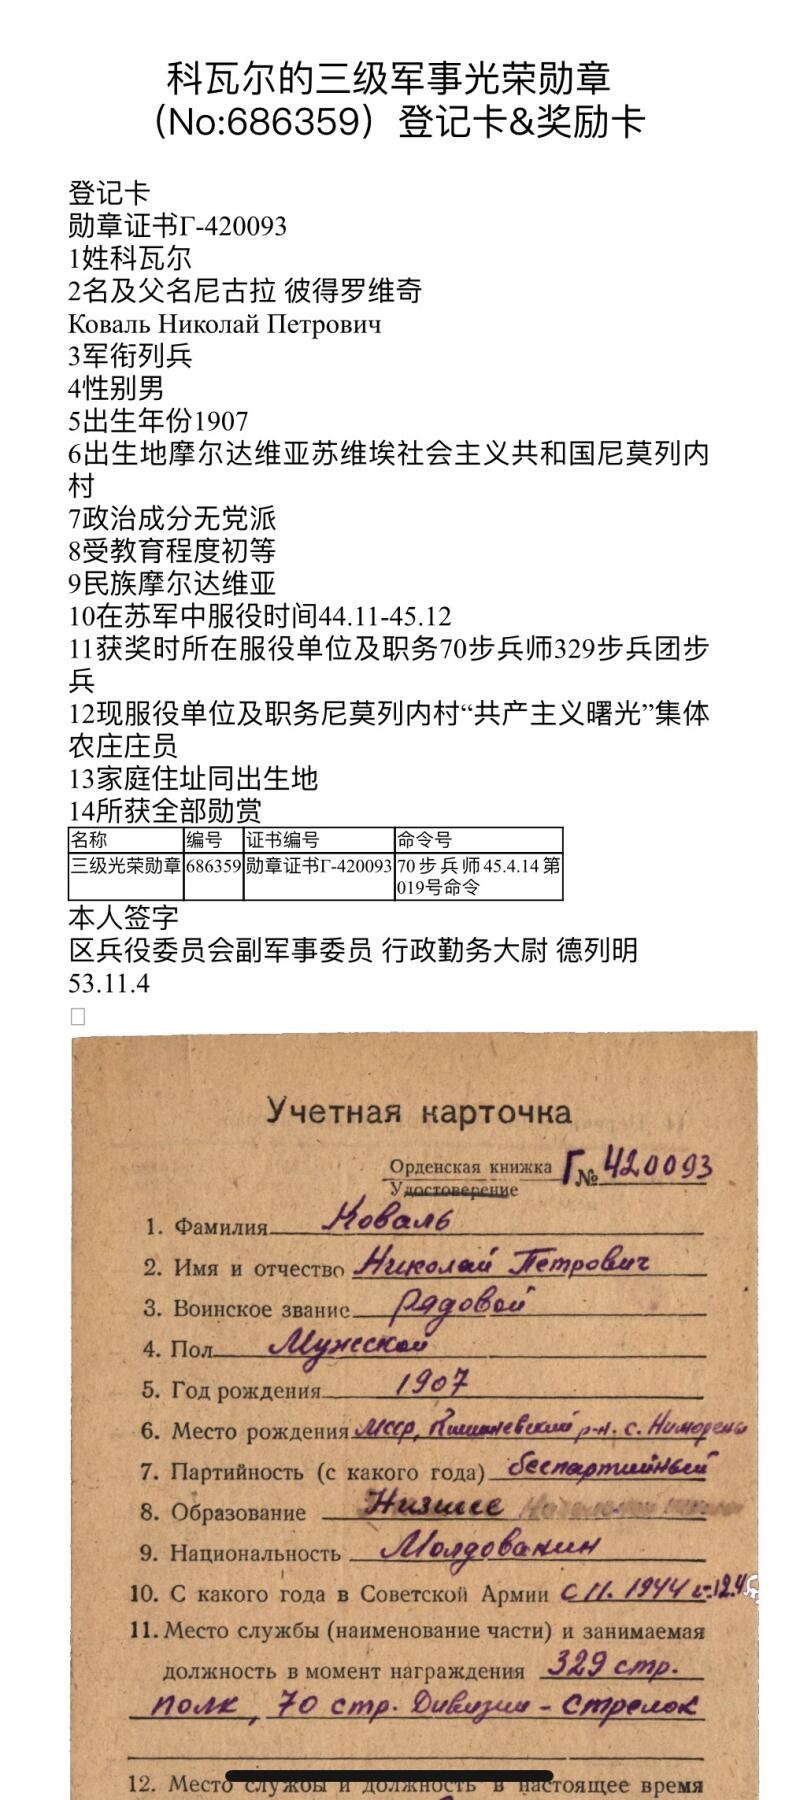 科瓦尔的三级军事光荣勋章
（No:686359）登记卡&奖励卡
登记卡
勋章证书Г-420093
1姓科瓦尔
2名及父名尼古拉 彼得罗维奇
Коваль Николай Петрович
3军衔列兵
4性别男
5出生年份1907
6出生地摩尔达维亚苏维埃社会主义共和国尼莫列内
村
7政治成分无党派
8受教育程度初等
9民族摩尔达维亚
10在苏军中服役时间44.11-45.12
11获奖时所在服役单位及职务70步兵师329步兵团步
兵
12现服役单位及职务尼莫列内村“共产主义曙光”集体
农庄庄员
13家庭住址同出生地
14所获全部勋赏
名称 编号 证书编号 命令号
三级光荣勋章 686359 勋章证书Г-420093 70步兵师45.4.14第
019号命令
本人签字
区兵役委员会副军事委员 行政勤务大尉 德列明
53.11.4
Учетная карточка
Орденская книжка Г № 420093
Удостоверение
1. Фамилия Коваль
2. Имя и отчество Николай Петрович
3. Воинское звание рядовой
4. Пол Мужской
5. Год рождения 1907
6. Место рождения МССР, Кишиневский р-н. с. Ниморены
7. Партийность (с какого года) беспартийный
8. Образование Низшее
9. Национальность Молдованин
10. С какого года в Советской Армии с 11. 1944
11. Место службы (наименование части) и занимаемая
должность в момент награждения 329 стр.
полк, 70 стр. Дивизии - стрелок
12. Место службы и должность в настоящее время